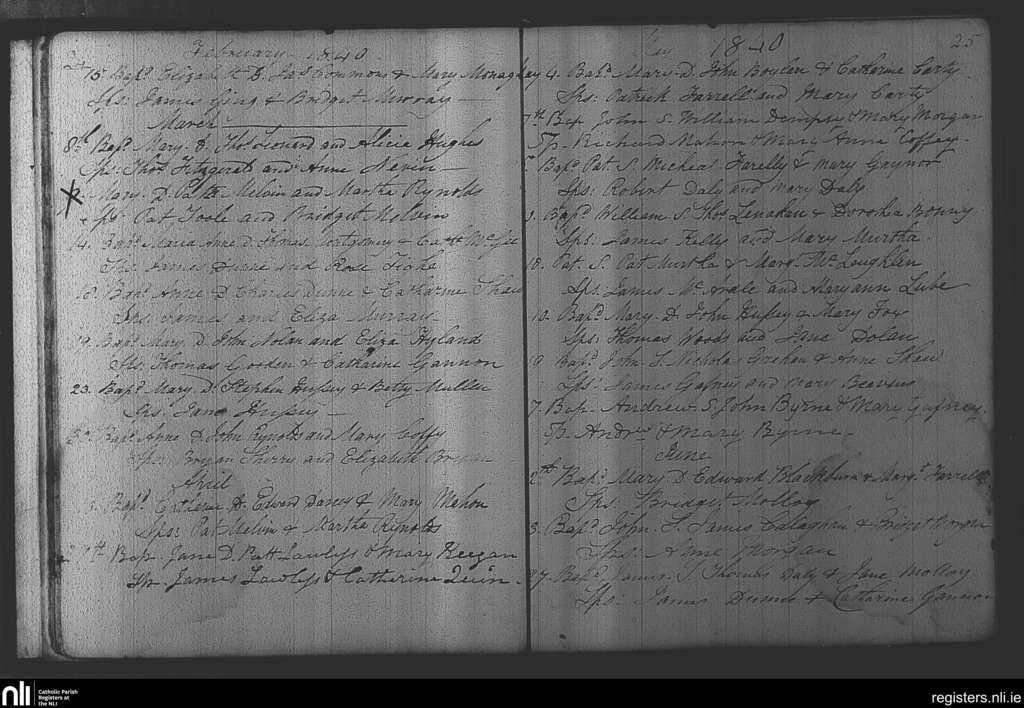 February 1840
15. Bapd. Elizabeth D. Jas. Commons & Mary Monaghey
Sps: James Ging & Bridget Murray
March
8th Bapd. Mary. D. Thos. Leonard and Alicia Hughes
Sps: Thos. Fitzgerald and Anne Nevin
Mary. D. Patt. Melvin and Martha Rynolds
Sps. Pat Toole and Bridget Melvin
14. Bapd. Maria Anne D. Thomas Montgomery & Cath. McGee
Sps. James Duane and Rose
18. Bapd. Anne D Charles Dunne & Catharine Shaw
Sps. James and Eliza Murray
19. Bapd. Mary. D. John Nolan and Eliza Hyland
Sps. Thomas Gorden & Catharine Gannon
23. Bapd. Mary D. Stephen Hussey & Betty Mullen
Sps. Jane Hussey
Bapd. Anne D John Rynolds and Mary Coffy
Sps: Bryan Sherry and Elizabeth
April
Bapd. Catherine D. Edward Darcey & Mary Mahon
Sps: Pat Melvin & Martha Rynolds
Bap. Jane D. Patt Lawless & Mary Keegan
Sp. James Lawless & Catherine Quin
May 1840
25
4. Bapd. Mary. D. John Boylan & Catharine Carty
Sps: Patrick Farrell and Mary Carty
7th Bap John S. William Dempsy & Mary Morgan
Sp. Richard Mahon & Mary Anne Coffey
Bapd. Pat. S. Micheal Farelly & Mary Gaynor
Sps: Robert Daly and Mary Daly
Bapd. William S. Thos. Lenahan & Dorothea
Sps: James Kelly and Mary Murtha
18. Pat. S. Pat Murtha & Marg. McLoughlen
Sps. James and Maryann Lube
10. Bapd. Mary. D. John Hussey & Mary Fox
Sps: Thomas Woods and Jane Dolan
Bapd. John. S. Nicholas Grehan & Anne Shaw
Sps: James Gafney and Mary
7. Bap. Andrew S. John Byrne & Mary Gafney
Sp. Andrw. & Mary Byrne
June
2nd Bapd. Mary D Edward Blackburn & Marg. Farrell
Sps: Bridget Molloy
3. Bapd. John. S. James Calaghan & Bridget Morgan
Sps: Anne Morgan
27. Bapd. James. S. Thomas Daly & Jane Molloy
Sps: James Dunne & Catharine Gannon
nli
Catholic Parish
Registers at
the NLI
registers.nli.ie